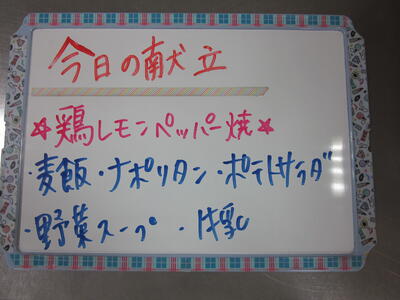 今日の献立
☆鶏レモンペッパー焼☆
・麦飯・ナポリタン・ポテトサラダ
・野菜スープ・牛乳